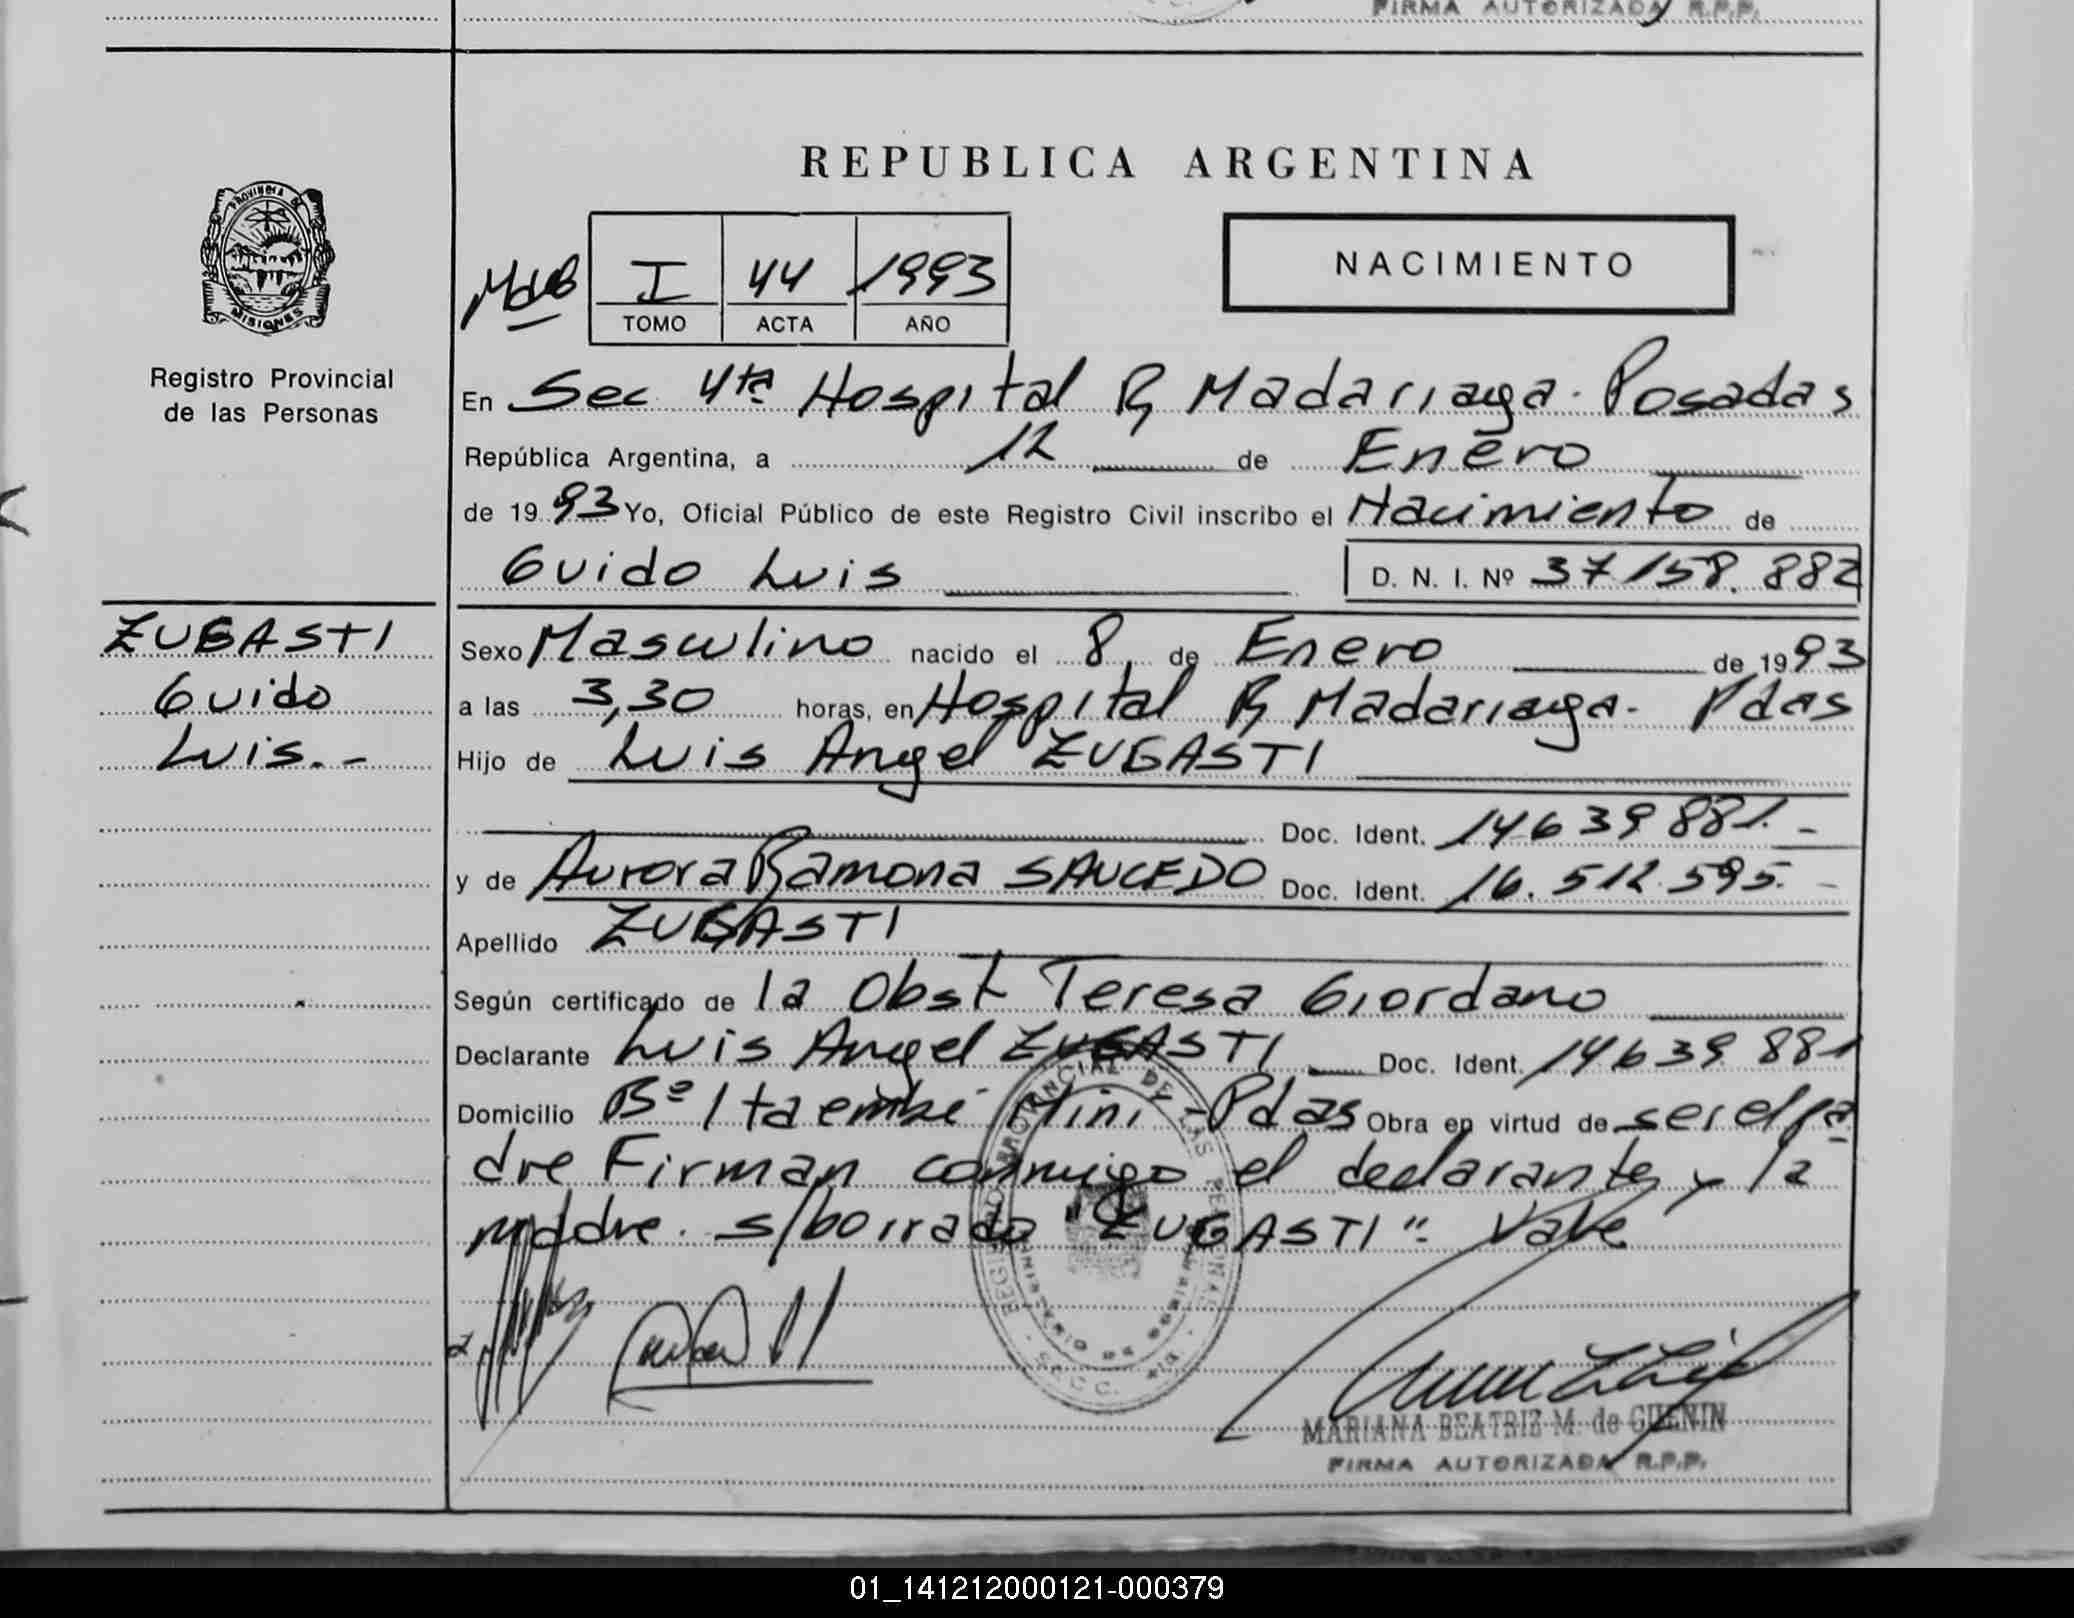 FIRMA AUTORIZADA R.P.P.
REPUBLICA ARGENTINA
PROVINCIA DE
MISIONES
Registro Provincial
de las Personas
I 44 1993
TOMO ACTA AÑO
NACIMIENTO
En Sec 4ta Hospital R Madariaga. Posadas
República Argentina, a 12 de Enero
de 1993 Yo, Oficial Público de este Registro Civil inscribo el Nacimiento de
Guido Luis D. N. I. Nº 37158.882
ZUGASTI
Guido
Luis.-
Sexo Masculino nacido el 8 de Enero de 1993
a las 3,30 horas, en Hospital R Madariaga- Pdas
Hijo de Luis Angel ZUGASTI
Doc. Ident. 14639881.-
y de Aurora Ramona SAUCEDO Doc. Ident. 16.512.595.-
Apellido ZUGASTI
Según certificado de la Obst Teresa Giordano
Declarante Luis Angel ZUGASTI Doc. Ident. 14639881
Domicilio Bº Itaembé Mini -Pdas Obra en virtud de ser el pa
dre Firman conmigo el declarante y la
madre. s/borrado "ZUGASTI". Vale
MARIANA BEATRIZ M. de GUENIN
FIRMA AUTORIZADA R.P.P.
01_141212000121-000379